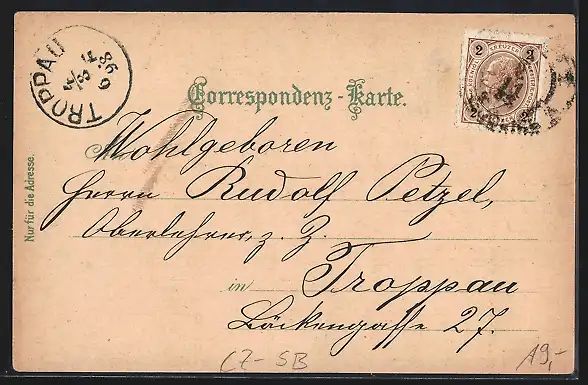 TROPPAU
98
2 KREUZER 2
2 2
Correspondenz-Karte.
Nur für die Adresse.
Wohlgeboren
Herrn Rudolf Petzel,
Oberlehrer, z. Z.
in Troppau
Bäckengasse 27.
CZ-SB
19,-